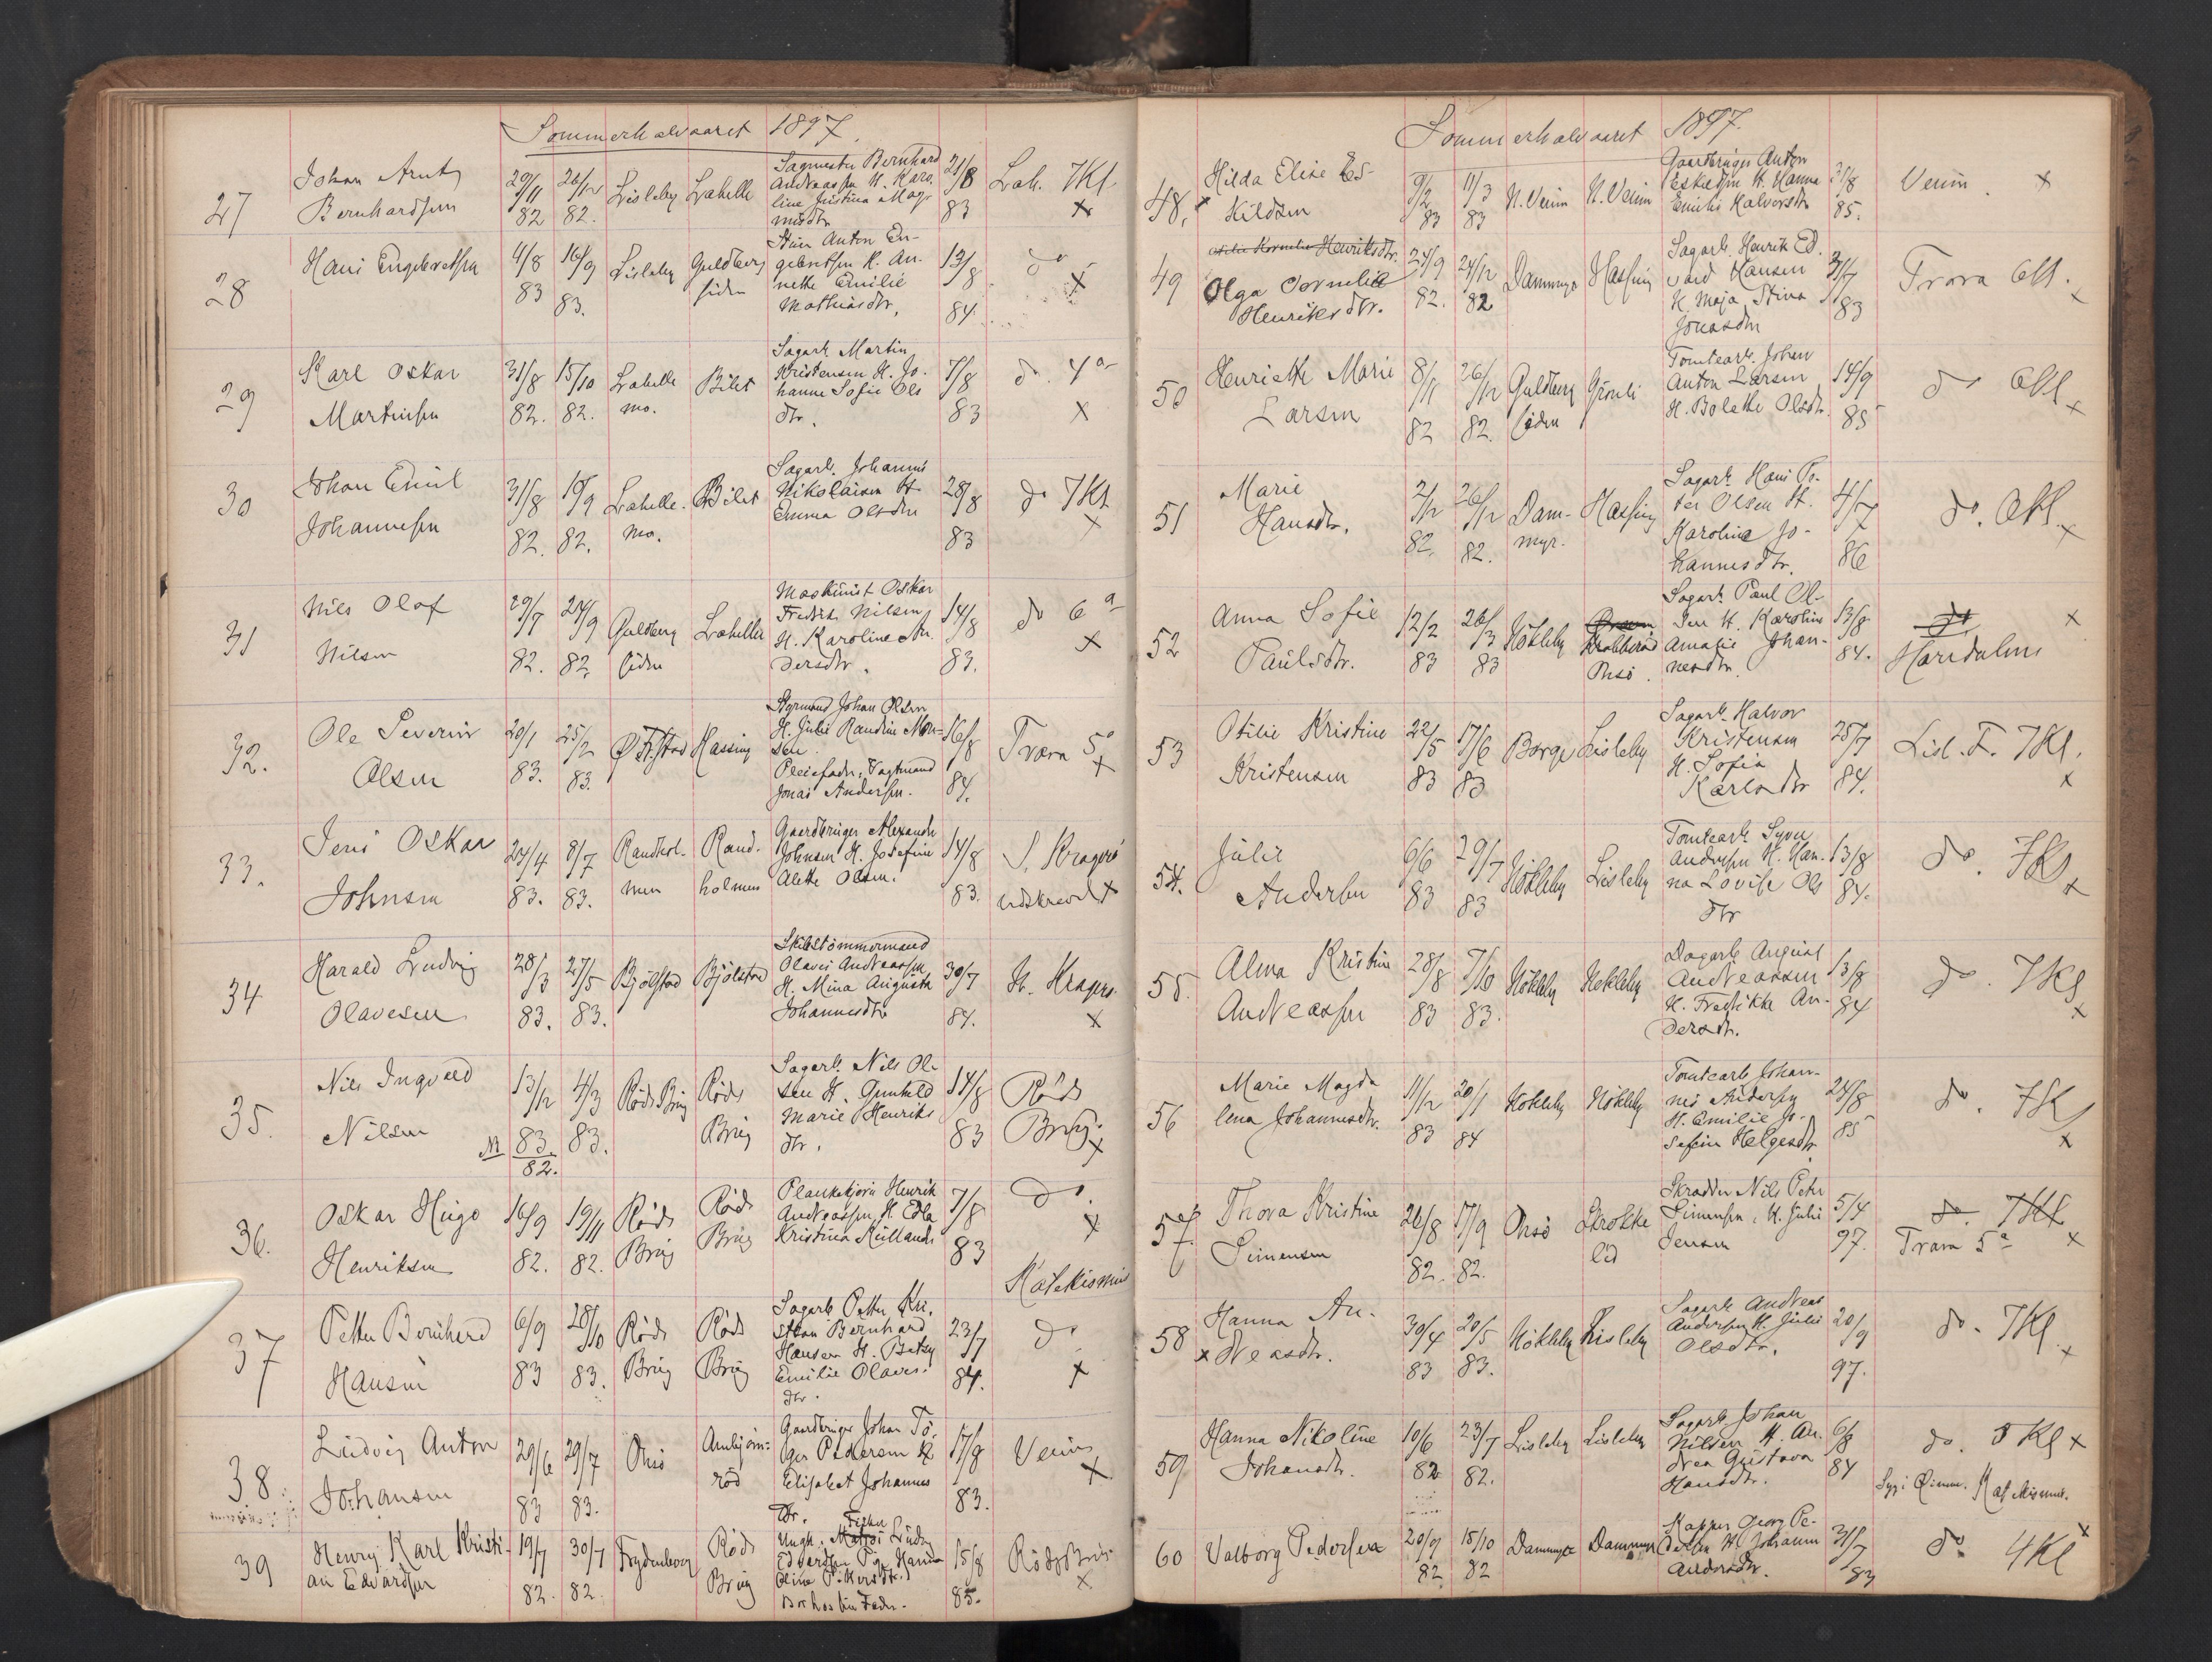 Sommerhalvaaret 1897.
27
Johan Arnt
Bernhardsen
29/11 82
26/12 82.
Lisleby
Labelle
Sagmester Bernhard
Andreassen H. Karo-
line Justina Mag-
nusdtr
21/8 83
Lab. 7Kl
x
28
Hans Engebretsen
4/8 83
16/9 83.
Lisleby
Guldberg
siden
Anton En-
gebretsen H. An-
nette Emilie
Mathiasdtr.
13/8 84
do
x
29
Karl Oskar
Martinsen
31/8 82.
15/10 82.
Labelle
mo.
Bilet
Sagarb. Martin
Kristensen H. Jo-
hanne Sofie Ols
dtr.
7/8 83
do. 4a
x
30
Johan Emil
Johannesen
31/8 82.
82.
Labelle.
mo.
Bilet
Sagarb. Johannes
Nikolaisen H.
Emma Olsdtr
28/8 83
do 7Kl
x
31
Nils Olaf
Nilsen
29/7 82.
24/9 82
Guldberg
siden
Labelle
Maskinist Oskar
Fredrik Nilsen,
H. Karoline An-
dersdtr.
14/8 83.
do 6a
x
32.
Ole Severin
Olsen
20/1 83.
25/2 83.
Ø. F.stad
Hassing
Styrmand Johan Olsen
H. Julie Raudine Mon-
sen.
Pleiefader: Vagtmand
Jonas Andersen.
16/8 84.
Trara 5a
x
33.
Jens Oskar
Johnsen
24/4 83.
8/7 83.
Raudhol-
men
Raud-
holmen
Gaardbruger Alexander
Johnsen H. Josefine
Alette Olsen.
14/8 83.
S. Kragerö
udskrevet x
34
Harald Ludvig
Olavesen
28/3 83.
27/5 83.
Bjölstad
Bjölstad
Skibstömmermand
Olaves Andreassen
H. Mina Augusta
Johannesdtr
30/7 84.
N. Kragerö
x
35.
Nils Ingvald
Nilsen
N
13/12 83.
82.
4/3 83.
Röds Brug
Röds
Brug
Sagarb. Nils Ol-
sen H. Gunhild
Marie Henriks
dtr.
14/8 83
Röds
Brug.
x
36.
Oskar Hugo
Henriksen
16/9 82.
19/11 82.
Röds
Brug
Röds
Brug
Plankekjörer Henrik
Andreassen H. Edla
Kristina
7/8 83
do.
x
Katekismus
37
Petter Bernhard
Hansen
6/9 83
28/10 83.
Röds
Brug
Röds
Brug
Sagarb. Petter Kri-
stian Bernhard
Hansen H. Betzy
Emilie Olaves-
dtr.
23/7 84.
do
x
38.
Ludvig Anton
Johansen
29/6 83
29/7 83.
Onsö
Ambjörn-
röd
Gaardbruger Johan To-
ger Pedersen H
Elisabet Johannes
dtr.
17/8 83.
Veum
x
39
Henry Karl Kristi-
an Edvardsen
19/7 82.
30/7 82.
Frydenberg
Röds
Brug
Fisker
Ungk. Matros Ludv.
Edvardsen Pige Hanna
Oline
Bor hos sin Fader.
15/8 85.
Röds Brug
x
Sommerhalvaaret 1897.
48.
x
Hilda Elise Es-
kildsen
9/2 83
11/3 83
N. Veum
N. Veum
Gaardbruger Anton
Eskildsen H. Hanna
Emilie Halvorsdtr
21/8 85.
Veum. x
49
Henriksdtr.
Olga Cornelia
Henriksdtr.
24/9 82.
24/12 82
Dammyr
Hassing
Sagarb. Henrik Ed-
vard Hansen
H. Maja Stina
Jonasdtr
31/7 83
Trara 6Kl.
x
50
Henriette Marie
Larsen
8/11 82
26/12 82.
Guldberg
siden
Grönli
Tomtearb. Johan
Anton Larsen
H. Bolette Olsdtr.
14/9 85
do 6Kl
x
51
Marie
Hansdtr.
2/12 82.
26/12 82.
Dam-
myr.
Hassing
Sagarb. Hans Pe-
ter Olsen H.
Karoline Jo-
hannesdtr.
4/7 86
do. 6Kl.
x
52
Anna Sofie
Paulsdtr.
12/2 83
26/3 83
Nökleby
Krabberöd
Onsö.
Sagarb. Paul Ol-
sen H. Karoline
Amalie Johan-
nesdtr.
13/8 84.
do
x
Haredalen
53
Otilie Kristine
Kristensen
22/5 83
17/6 83
Borge
Lisleby
Sagarb. Halvor
Kristensen
H. Sofie
Karlsdtr
25/7 84.
Lisl. F. 7Kl.
x
54.
Julie
Andersen
6/6 83
29/7 83
Nökleby
Lisleby
Tomtearb. Syver
Andersen H. Han-
na Lovise Ols
dtr
13/8 84.
do. 7Kl
x
55.
Alma Kristine
Andreassen
28/8 83
7/10 83.
Nökleby
Nökleby
Dagarb. August
Andreassen
H. Fredrikke An-
dersdtr.
13/8 84
do. 7Kl
x
56
Marie Magda
lena Johannesdtr.
11/12 83
20/1 84
Nökleby
Nökleby
Tomtearb. Johan-
nes Andersen
H. Emilie Jo-
sefine Helgesdtr.
24/8 85
do. 7Kl
x
57.
Thora Kristine
Simensen
26/8 82.
17/9 82.
Onsö
Strökke
lid
Skrædder Nils Peter
Simensen, H. Julie
Jensen
5/4 97.
do. 7Kl
x
Trara 5a
58
x
Hanna An-
dreasdtr.
30/4 83
20/5 83.
Nökleby
Lisleby
Sagarb. Andreas
Andersen H. Julie
Olsdtr.
20/9 97.
do. 7Kl
x
59
Hanna Nikoline
Johansdtr.
10/6 82
23/7 82.
Lisleby
Lisleby
Sagarb. Johan
Nilsen H. An-
drea Gustava
Hansdtr.
6/8 84
do. 5Kl x
Katekismus.
60
Valborg Pedersen
20/9 82
15/10 82
Dammyr
Dammyr
Kapper Georg Pe-
dersen H. Johanne
Andersdtr.
31/7 83
do. 4Kl
x